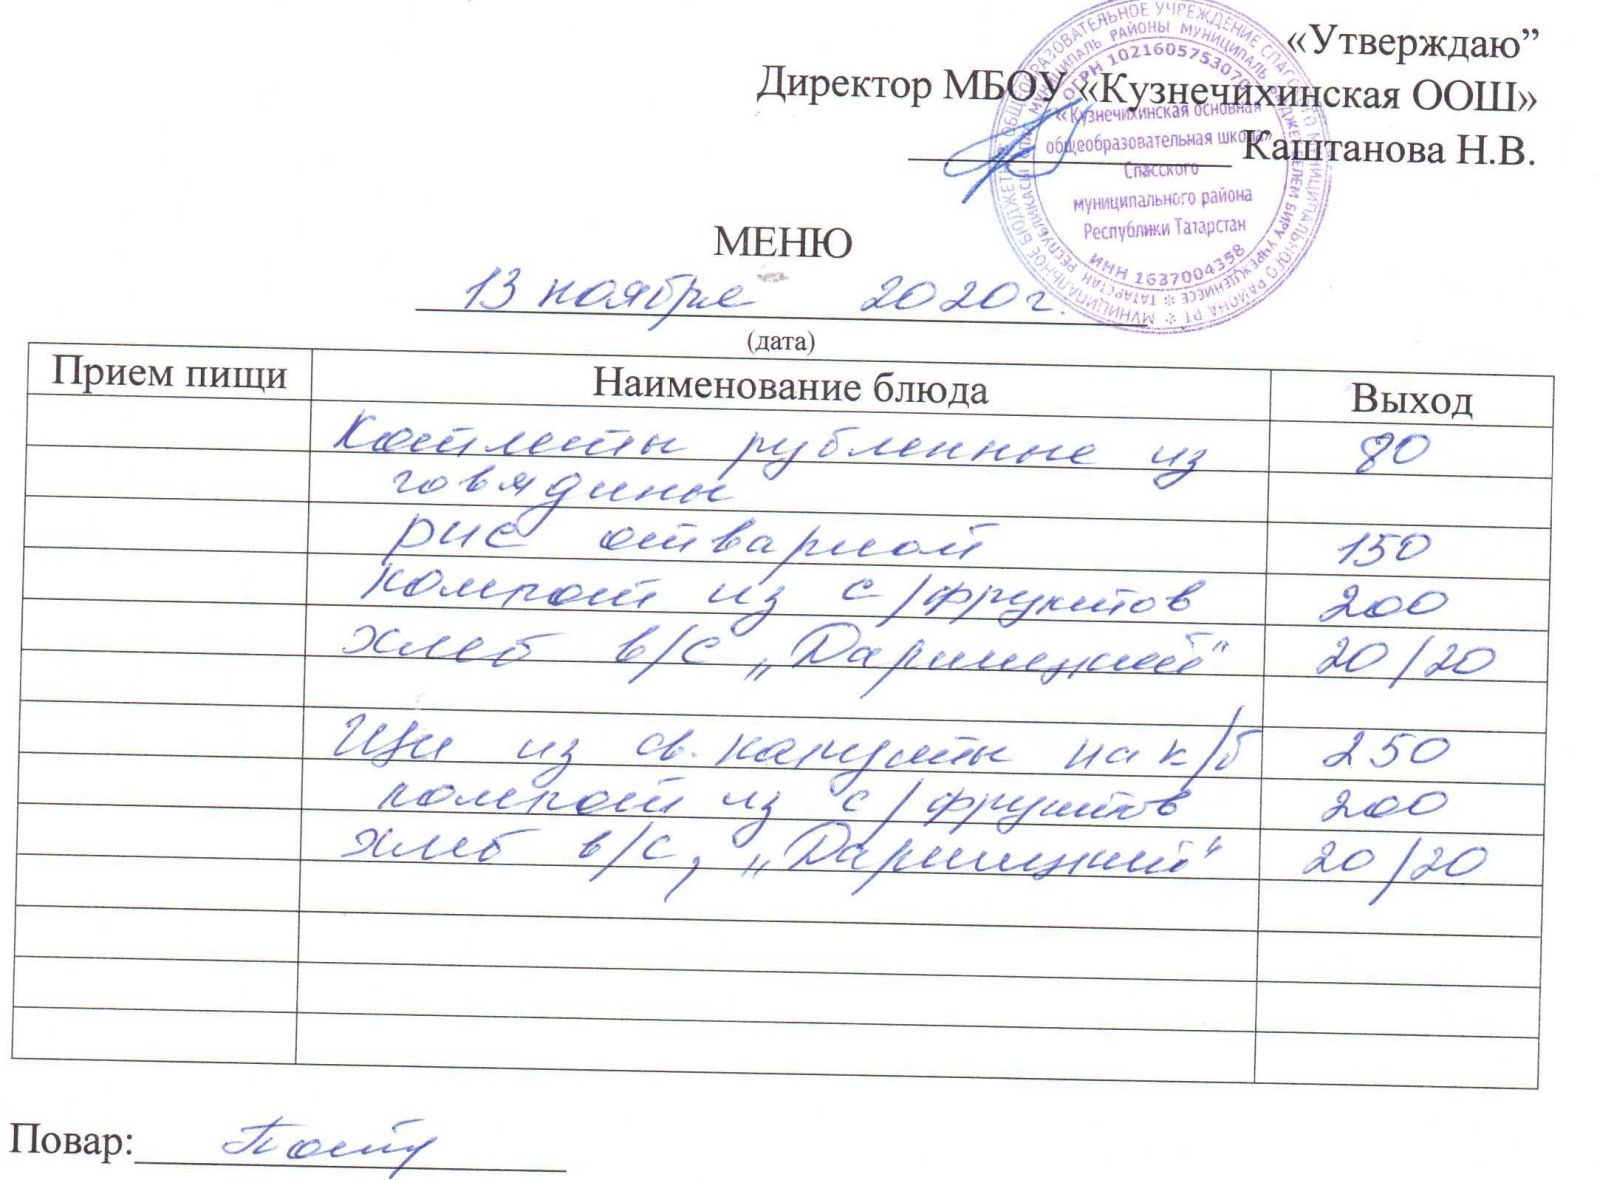 «Утверждаю”
Директор МБОУ «Кузнечихинская ООШ»
Каштанова Н.В.
ОГРН 1021605753079
«Кузнечихинская основная
общеобразовательная школа»
Спасского
муниципального района
Республики Татарстан
ИНН 1637004358
МЕНЮ
13 ноября 2020 г.
(дата)
Прием пищи Наименование блюда Выход
Котлеты рубленные из 80
говядины
рис отварной 150
компот из с/фруктов 200
Хлеб в/с „Дарницкий“ 20/20
Щи из св. капусты на к/б 250
компот из с/фруктов 200
Хлеб в/с, „Дарницкий“ 20/20
Повар: